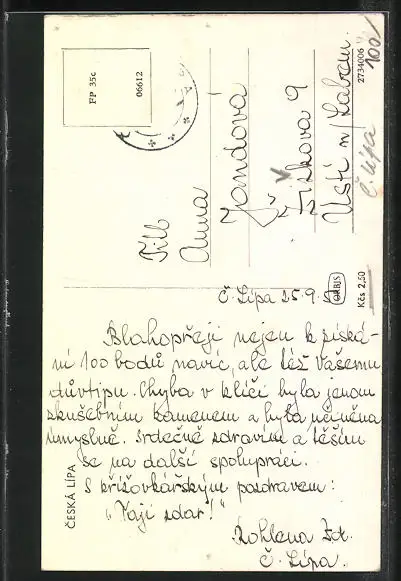 FP 35c
06612
Anna
Jandová
Žižkova 9
Ústí n/Labem.
2734006
100/
Č. Lípa
Kčs 2,50
ORBIS
ČESKÁ LÍPA
Č. Lípa 25.9.
Blahopřeji nejen k získá-
ní 100 bodů navíc, ale též Vašemu
důvtipu. Chyba v klíči byla jenom
zkušebním kamenem a byla učiněna
úmyslně. Srdečně zdravím a těším
se na další spolupráci.
S křížovkářským pozdravem:
"Taji zdar!"
Kohlena
Č. Lípa.